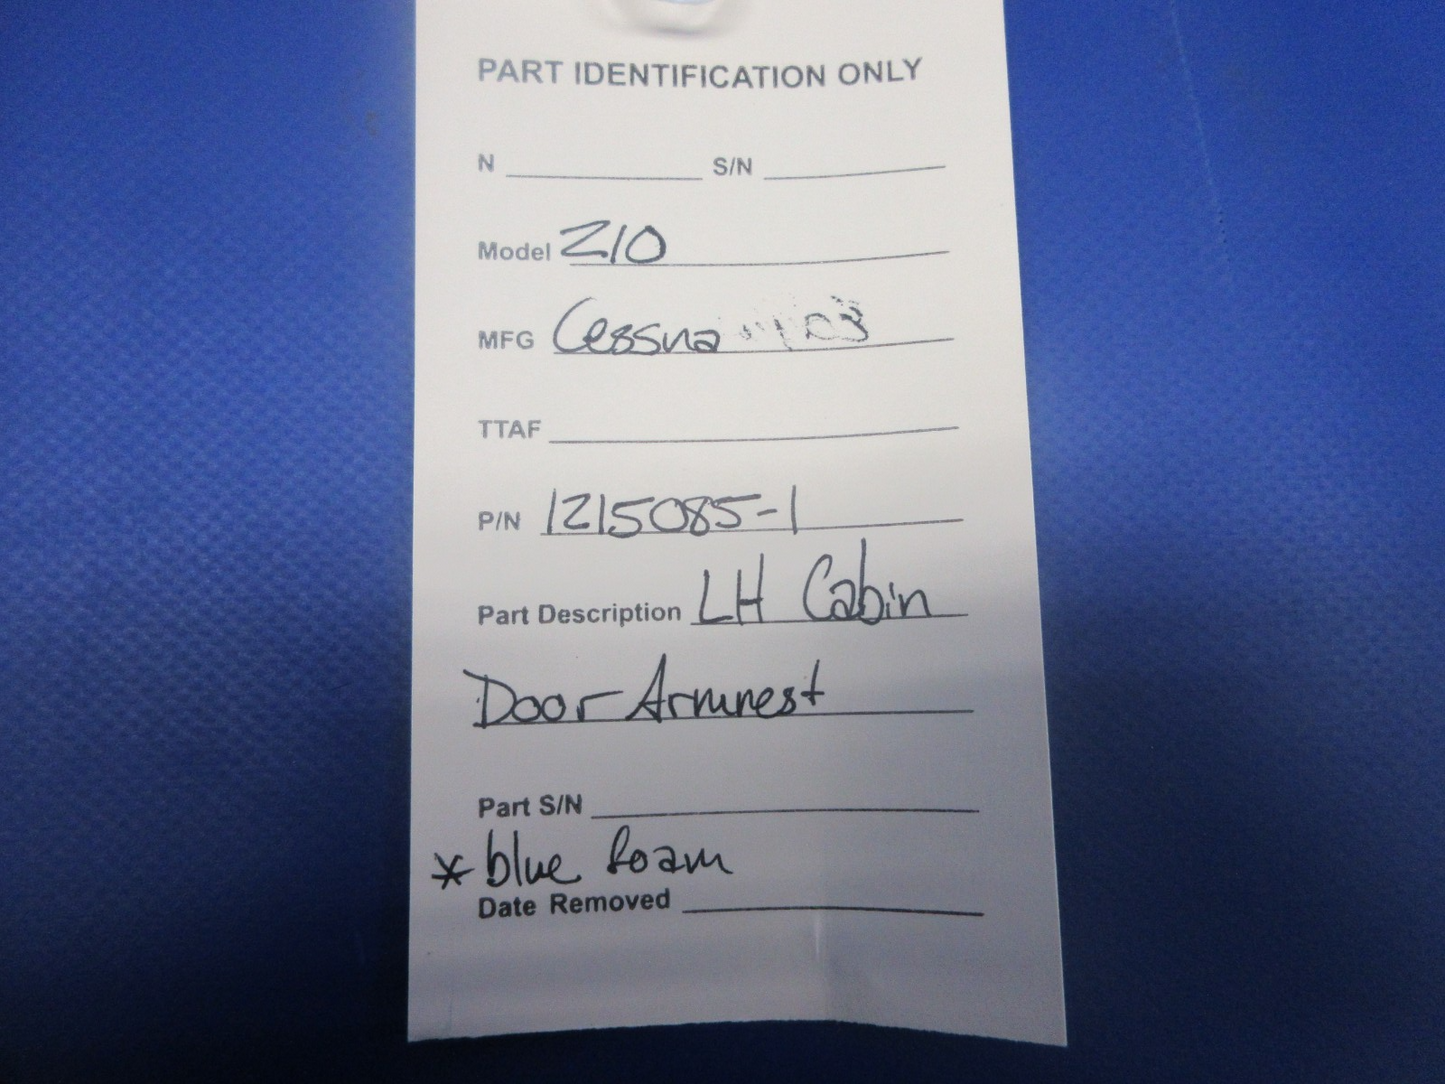 PART IDENTIFICATION ONLY
N S/N
Model 210
MFG Cessna
TTAF
P/N 1215085-1
Part Description LH Cabin
Door Armrest
Part S/N
* blue foam
Date Removed